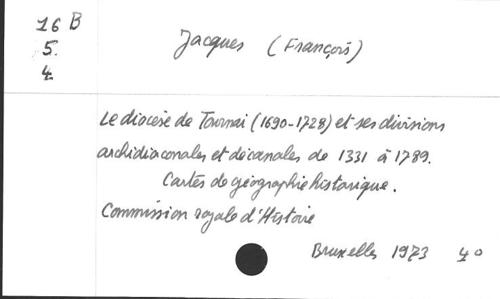 16 B
5.
4
Jacques (François)
Le diocèse de Tournai (1690-1728) et ses divisions
archidiaconales et décanales de 1331 à 1789.
Cartes de géographie historique.
Commission royale d'Histoire
Bruxelles 1973 4°